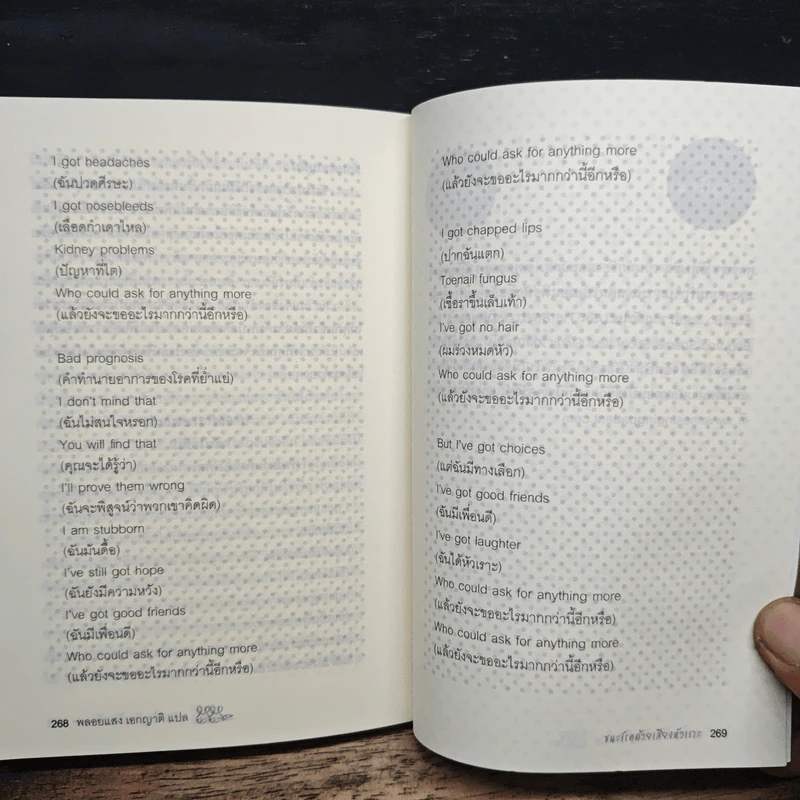 I got headaches
(ฉันปวดศีรษะ)
I got nosebleeds
(เลือดกำเดาไหล)
Kidney problems
(ปัญหาที่ไต)
Who could ask for anything more
(แล้วยังจะขออะไรมากกว่านี้อีกหรือ)
Bad prognosis
(คำทำนายอาการของโรคที่ย่ำแย่)
I don't mind that
(ฉันไม่สนใจหรอก)
You will find that
(คุณจะได้รู้ว่า)
I'll prove them wrong
(ฉันจะพิสูจน์ว่าพวกเขาคิดผิด)
I am stubborn
(ฉันมันดื้อ)
I've still got hope
(ฉันยังมีความหวัง)
I've got good friends
(ฉันมีเพื่อนดี)
Who could ask for anything more
(แล้วยังจะขออะไรมากกว่านี้อีกหรือ)
268 พลอยแสง เอกญาติ แปล
Who could ask for anything more
(แล้วยังจะขออะไรมากกว่านี้อีกหรือ)
I got chapped lips
(ปากฉันแตก)
Toenail fungus
(เชื้อราขึ้นเล็บเท้า)
I've got no hair
(ผมร่วงหมดหัว)
Who could ask for anything more
(แล้วยังจะขออะไรมากกว่านี้อีกหรือ)
But I've got choices
(แต่ฉันมีทางเลือก)
I've got good friends
(ฉันมีเพื่อนดี)
I've got laughter
(ฉันได้หัวเราะ)
Who could ask for anything more
(แล้วยังจะขออะไรมากกว่านี้อีกหรือ)
Who could ask for anything more
(แล้วยังจะขออะไรมากกว่านี้อีกหรือ)
ชนะโรคด้วยเสียงหัวเราะ 269